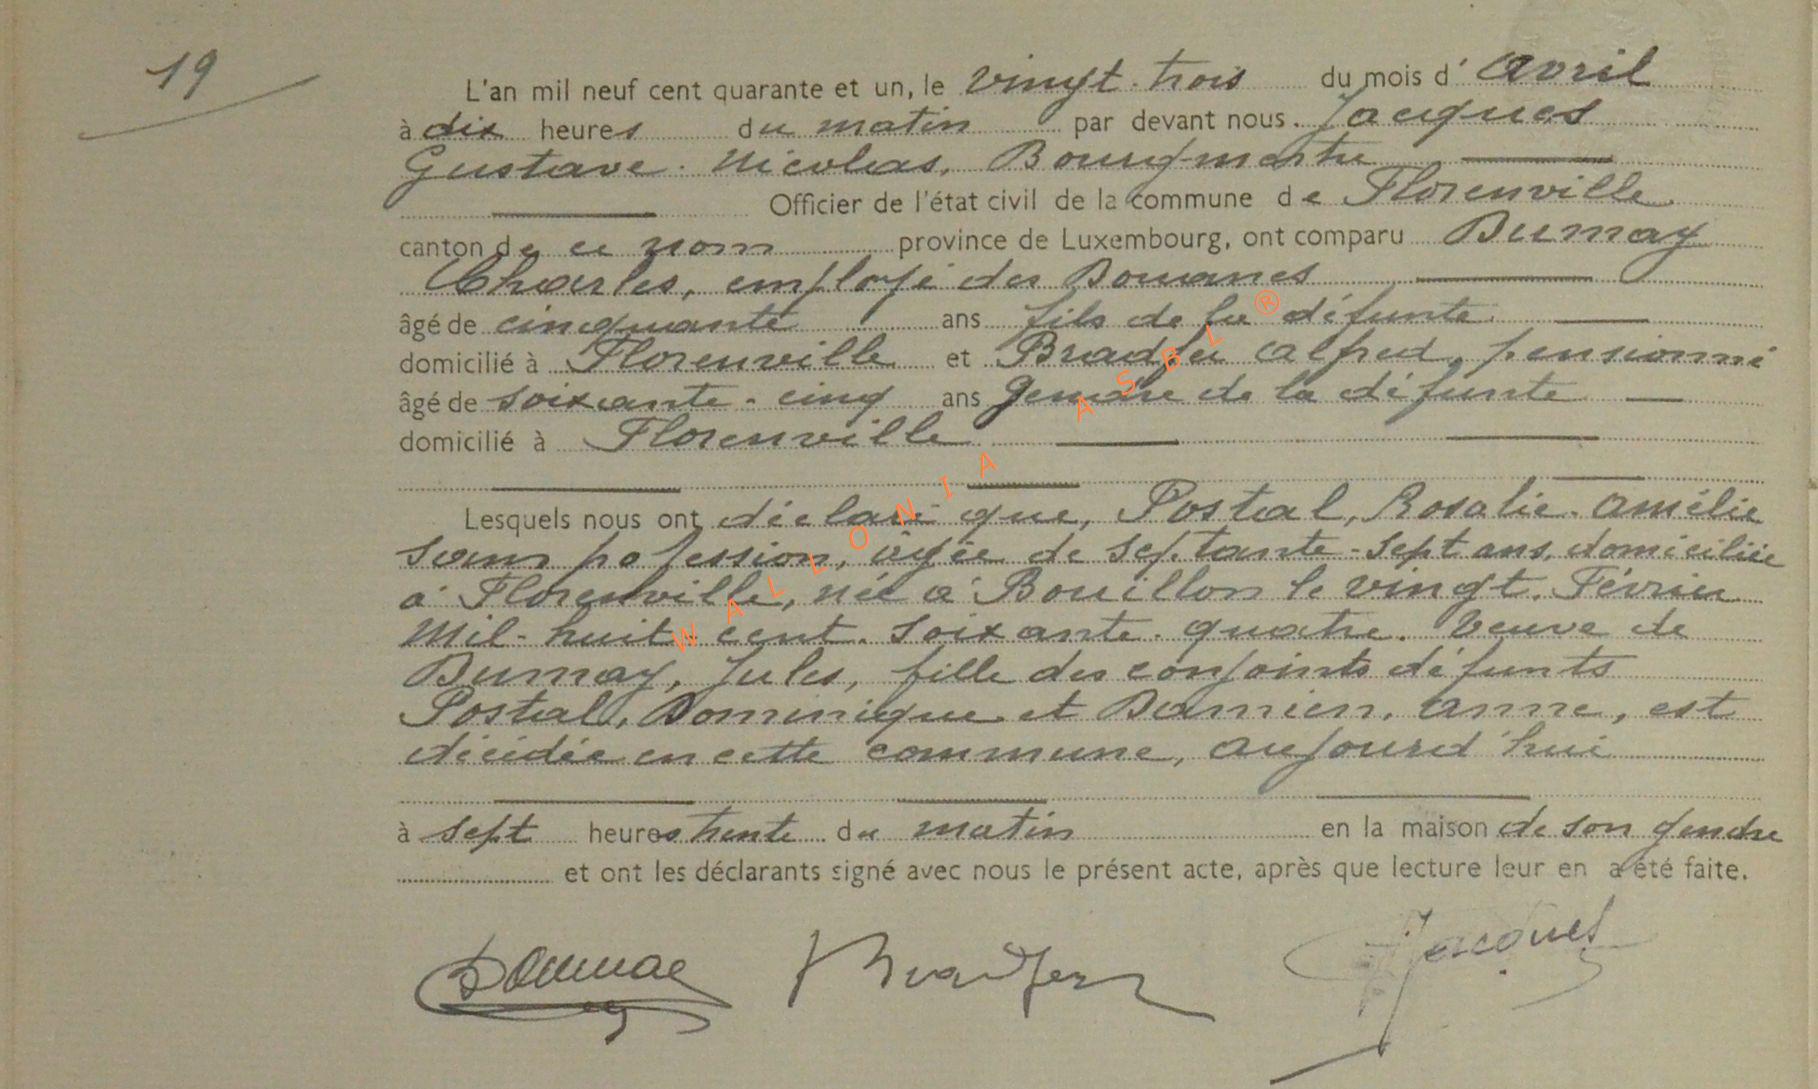 19
L'an mil neuf cent quarante et un, le vingt-trois du mois d'avril
à dix heures du matin par devant nous Jacques
Gustave Nicolas, Bourgmestre
Officier de l'état civil de la commune de Florenville
canton de ce nom province de Luxembourg, ont comparu Dumay
Charles, employé des Douanes
âgé de cinquante ans fils de la défunte
domicilié à Florenville et Bradfer Alfred, pensionné
âgé de soixante-cinq ans gendre de la défunte
domicilié à Florenville
Lesquels nous ont déclaré que, Postal, Rosalie-Amélie
sans profession, âgée de septante-sept ans, domiciliée
à Florenville, née à Bouillon le vingt Février
mil-huit cent soixante-quatre. Veuve de
Dumay, Jules, fille des conjoints défunts
Postal, Dominique et Damien, Anne, est
décédée en cette commune, aujourd'hui
à sept heures trente du matin en la maison de son gendre
et ont les déclarants signé avec nous le présent acte, après que lecture leur en a été faite.
Bradfer Jacques
WALLONIA ASBL ®